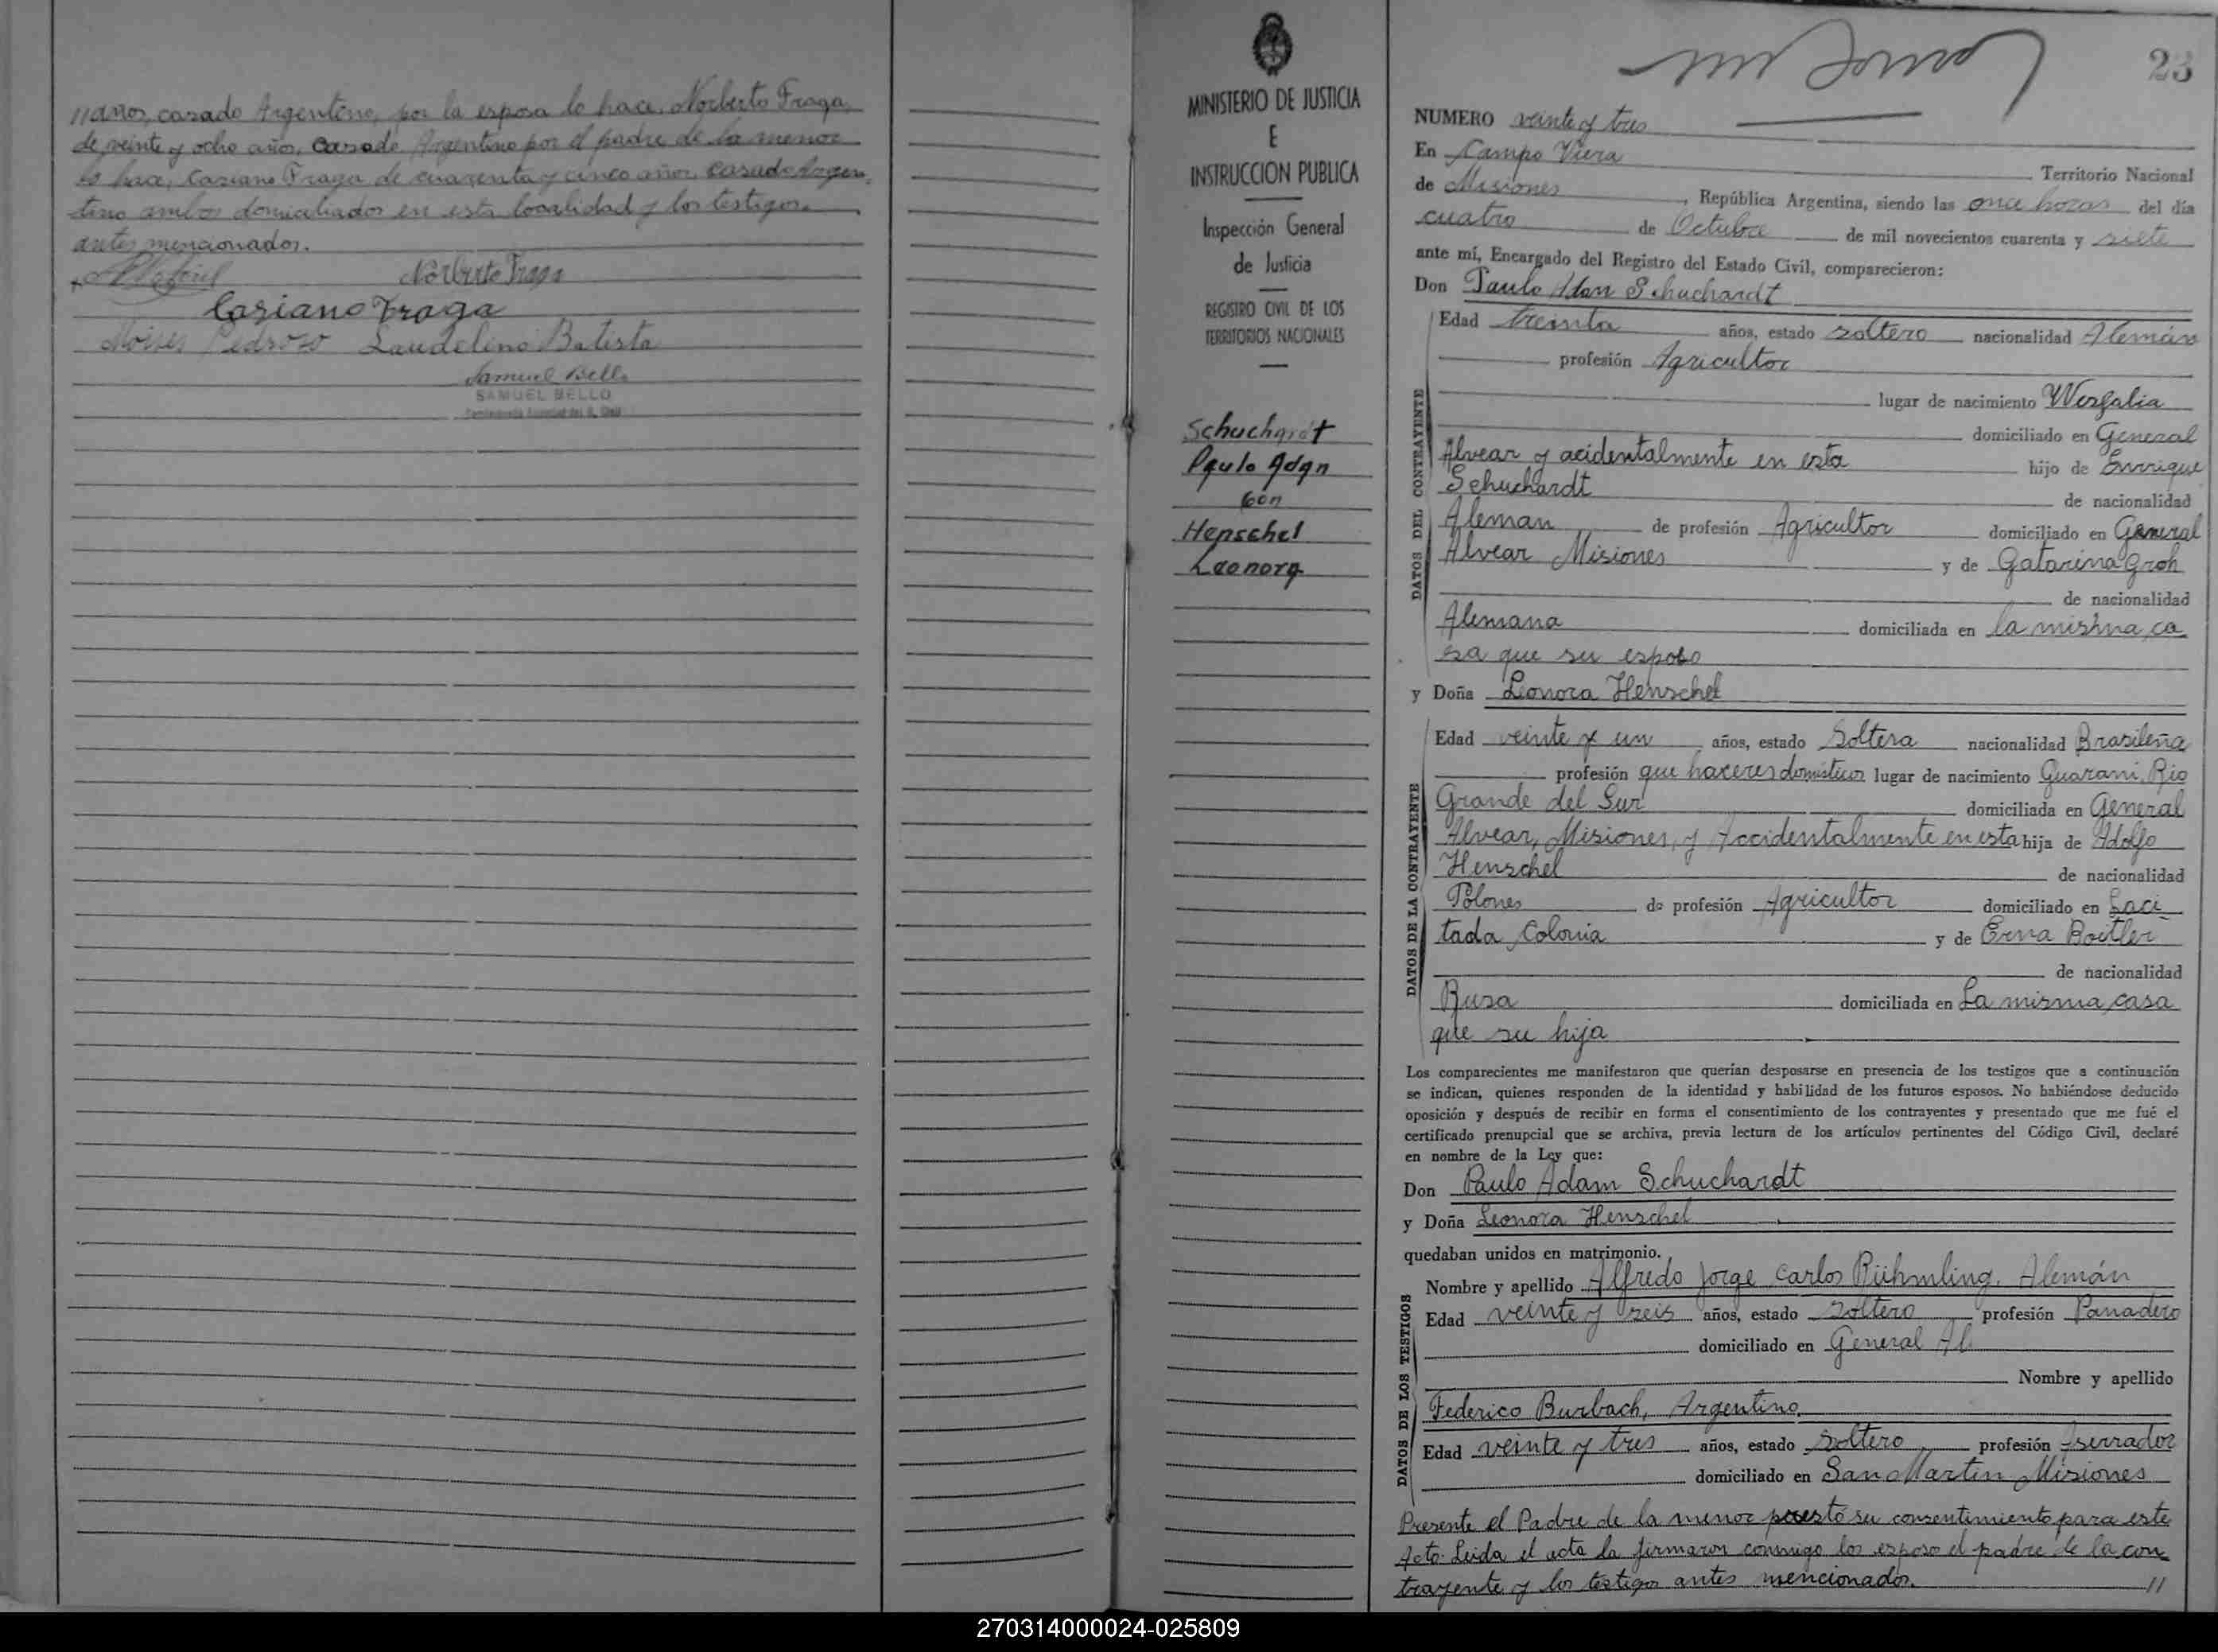 //años, casado Argentino, por la esposa lo hace, Norberto Fraga,
de veinte y ocho años, Casado Argentino por el padre de la menor
lo hace, Casiano Fraga de cuarenta y cinco años, casado Argen-
tino ambos domiciliados en esta localidad y los testigos.
antes mencionados.
Norberto Fraga
Casiano Fraga
Moises Pedrozo Laudelino Batista
Samuel Bello
SAMUEL BELLO
MINISTERIO DE JUSTICIA
E
INSTRUCCION PUBLICA
Inspección General
de Justicia
REGISTRO CIVIL DE LOS
TERRITORIOS NACIONALES
Schuchardt
Paulo Adan
Con
Henschel
Leonora
23
NUMERO veinte y tres
En Campo Viera Territorio Nacional
de Misiones, República Argentina, siendo las once horas del día
cuatro de Octubre de mil novecientos cuarenta y siete
ante mí, Encargado del Registro del Estado Civil, comparecieron:
Don Paulo Adan Schuchardt
DATOS DEL CONTRAYENTE
Edad treinta años, estado soltero nacionalidad Alemán
profesión Agricultor
lugar de nacimiento Wesfalia
domiciliado en General
Alvear y acidentalmente en esta hijo de Enrrique
Schuchardt de nacionalidad
Aleman de profesión Agricultor domiciliado en General
Alvear Misiones y de Gatarina Groh
de nacionalidad
Alemana domiciliada en la mishma ca
sa que su esposo
y Doña Leonora Henschel
DATOS DE LA CONTRAYENTE
Edad veinte y un años, estado Soltera nacionalidad Brasileña
profesión que haceres domésticos lugar de nacimiento Guarani, Rio
Grande del Sur domiciliada en General
Alvear, Misiones, y Accidentalmente en esta hija de Adolfo
Henschel de nacionalidad
Polones de profesión Agricultor domiciliado en Laci-
tada Colonia y de Erna Boitler
de nacionalidad
Rusa domiciliada en La misma casa
que su hija
Los comparecientes me manifestaron que querían desposarse en presencia de los testigos que a continuación
se indican, quienes responden de la identidad y habilidad de los futuros esposos. No habiéndose deducido
oposición y después de recibir en forma el consentimiento de los contrayentes y presentado que me fué el
certificado prenupcial que se archiva, previa lectura de los artículos pertinentes del Código Civil, declaré
en nombre de la Ley que:
Don Paulo Adam Schuchardt
y Doña Leonora Henschel
quedaban unidos en matrimonio.
DATOS DE LOS TESTIGOS
Nombre y apellido Alfredo Jorge Carlos Rühmling, Alemán
Edad veinte y seis años, estado soltero profesión Panadero
domiciliado en General Al.
Nombre y apellido
Federico Burbach, Argentino,
Edad veinte y tres años, estado Soltero profesión Aserrador
domiciliado en San Martin Misiones
Presente el Padre de la menor prestó su consentimiento para este
Acto. Leida el acta la firmaron conmigo los esposo el padre de la con
trayente y los testigos antes mencionados. //
270314000024-025809